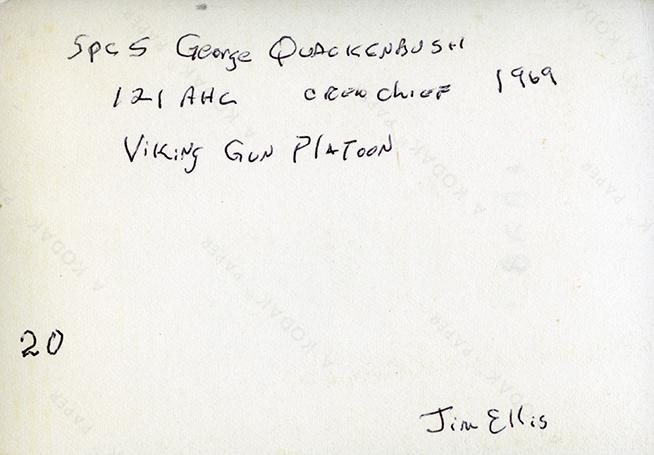 Spc 5 George QUACKENBUSH
121 AHC crew chief 1969
Viking Gun Platoon
A KODAK PAPER
20
Jim Ellis